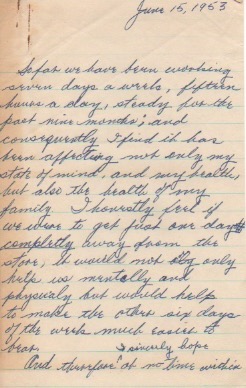 June 15, 1953
So far we have been working
seven days a week, fifteen
hours a day, steady for the
past nine months; and
consequently I find it has
been affecting not only my
state of mind, and my health,
but also the health of my
family. I honestly feel if
we were to get just one day off
completly away from the
store, it would not only
help us mentally and
physicaly but would help
to make the other six days
of the week much easier to
bear. I sincerly hope
And therefore at no time within